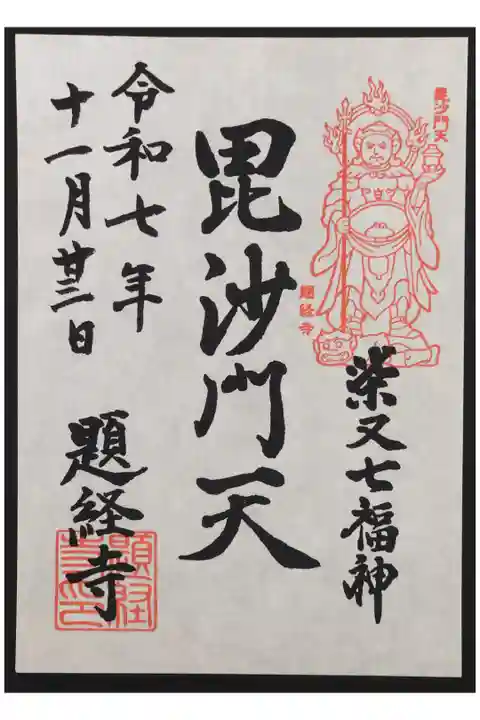 毘沙門天
題経寺
柴又七福神
毘沙門天
令和七年
十一月廿三日
題経寺
題経寺